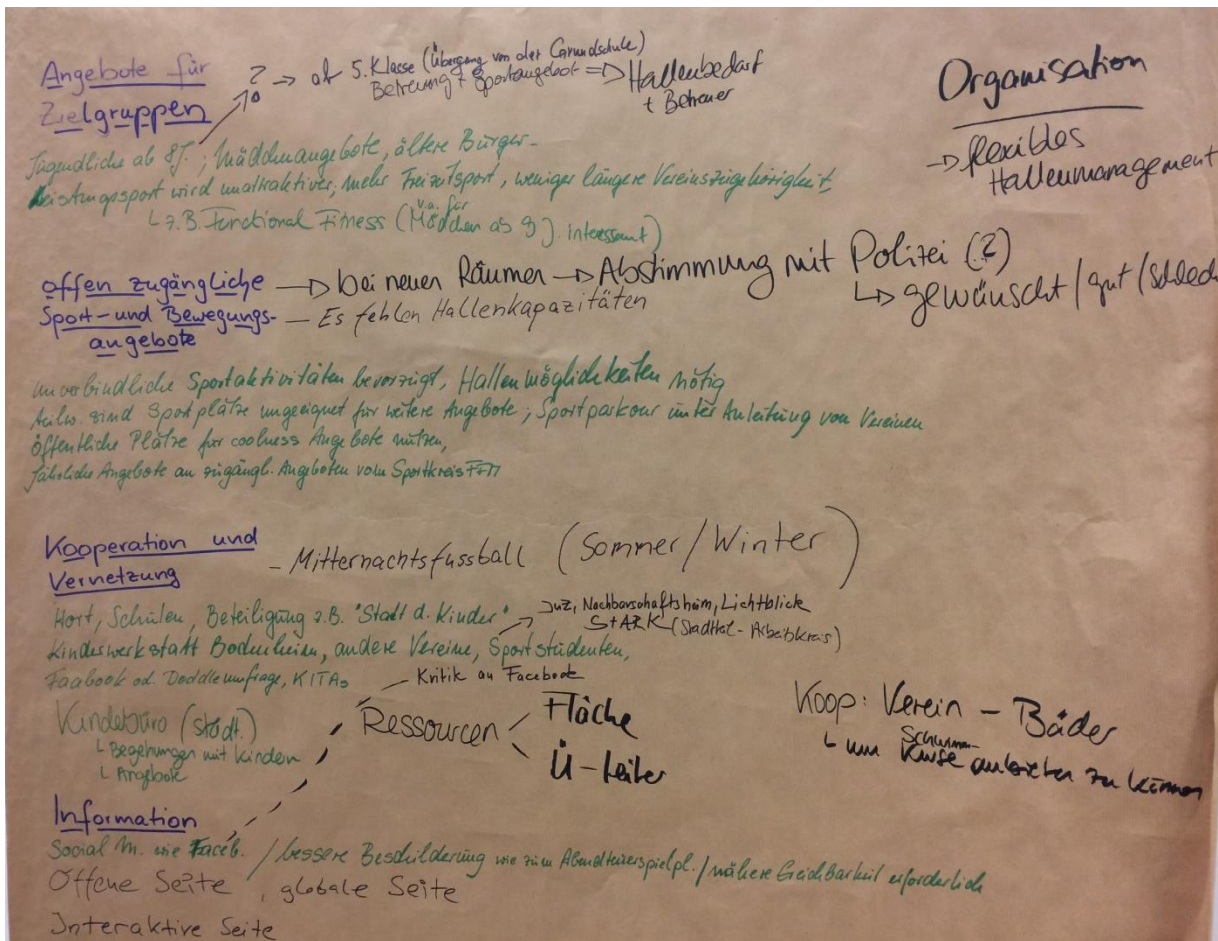 Angebote für
Zielgruppen
? → ab 5. Klasse (Übergang von der Grundschule)
Betreuung + Sportangebot => Hallenbedarf
+ Betreuer
Organisation
→ flexibles
Hallenmanagement
Jugendliche ab 8J. ; Mädchenangebote, ältere Bürger -
Leistungssport wird unattraktiver, mehr Freizeitsport, weniger längere Vereinszugehörigkeit
└ z.B. Functional Fitness (v.a. für Mädchen ab 9 J. interessant)
offen zugängliche → bei neuen Räumen → Abstimmung mit Polizei (?)
└> gewünscht / gut / schlech
Sport- und Bewegungs- — Es fehlen Hallenkapazitäten
angebote
unverbindliche Sportaktivitäten bevorzugt, Hallenmöglichkeiten nötig
teilw. sind Sportplätze ungeeignet für weitere Angebote ; Sportparkour unter Anleitung von Vereinen
öffentliche Plätze für coolness Angebote nutzen,
jährliche Angebote an zugängl. Angeboten vom Sportkreis FFM
Kooperation und
Vernetzung
- Mitternachtsfussball (Sommer/Winter)
Hort, Schulen, Beteiligung z.B. "Stadt d. Kinder"
→ Juz, Nachbarschaftsheim, Lichtblick
StARK (Stadtteil-Arbeitskreis)
Kinderwerkstatt Bockenheim, andere Vereine, Sportstudenten,
Faabook od. Doddle umfrage, KITAs
— Kritik an Facebook
Kinderbüro (städt.)
└ Begehungen mit Kindern
└ Angebote
Ressourcen < Fläche
Ü-Leiter
Koop: Verein – Bäder
└ um Schwimm-
Kurse anbieten zu können
Information
Social M. wie Faceb. / bessere Beschilderung wie zum Abenteuerspielpl. / nähere Erreichbarkeit erforderlich
Offene Seite , globale Seite
Interaktive Seite